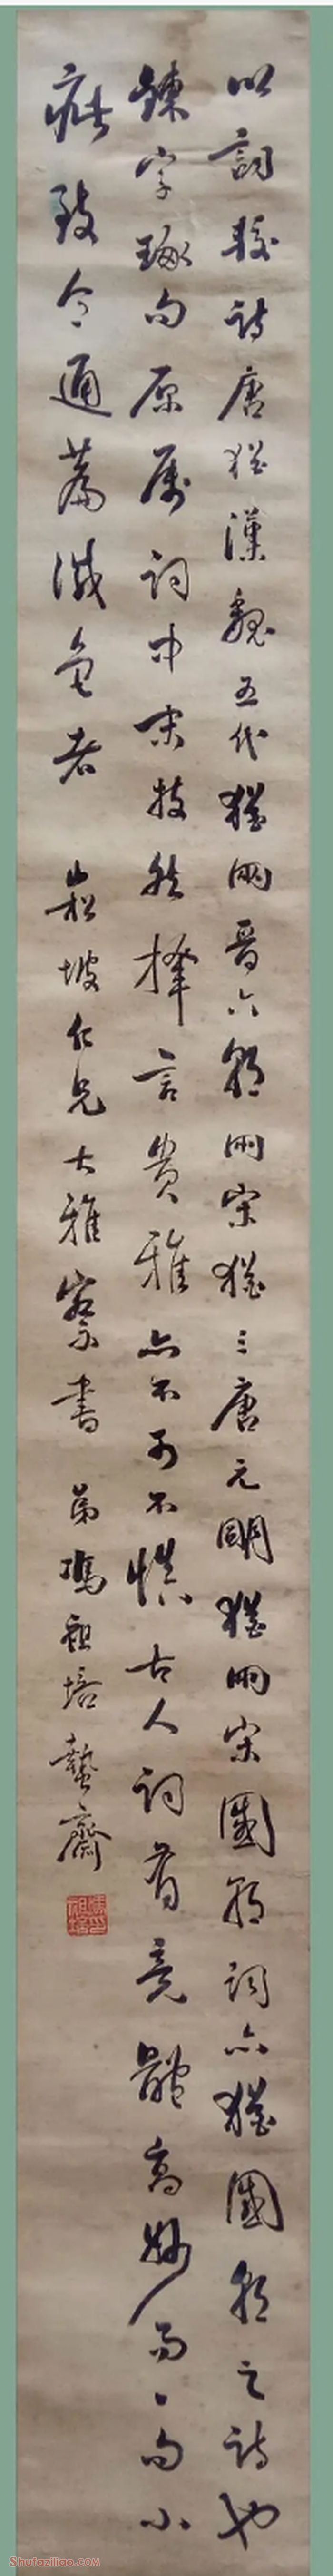 以詞較詩唐猶漢魏五代猶兩晉六朝兩宋猶三唐元明猶兩宋國朝詞亦猶國朝之詩也
鍊字琢句原屬詞中末技然擇言貴雅亦不可不慎古人詞有竟體高妙而一句小
疵致令通篇減色者 崧坡仁兄大雅察書 弟馮祖培蟄齋
Shutaziliao.com